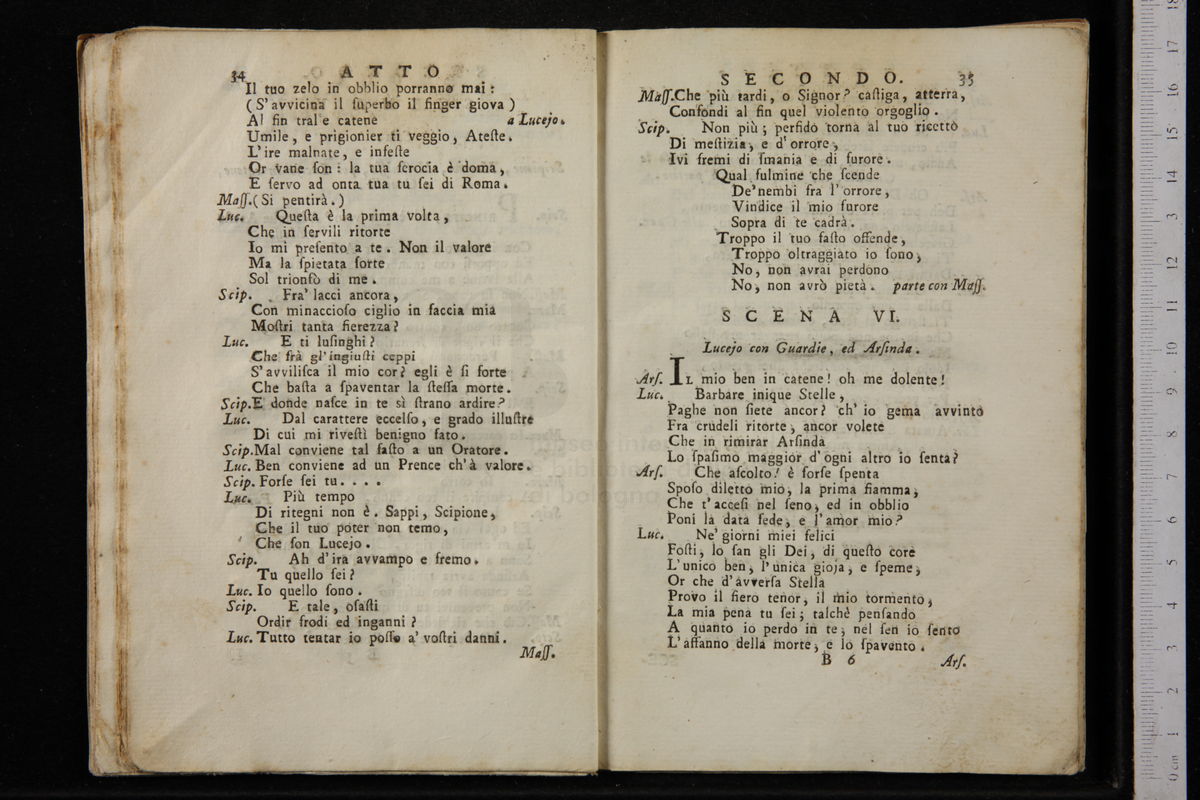 34 ATTO
Il tuo zelo in obblio porranno mai :
( S'avvicina il ſuperbo il finger giova )
Al fin tral'e catene a Lucejo.
Umile, e prigionier ti veggio, Ateſte.
L'ire malnate, e infeſte
Or vane ſon : la tua ferocia è doma,
E ſervo ad onta tua tu ſei di Roma.
Maſſ.( Si pentirà. )
Luc. Queſta è la prima volta,
Che in ſervili ritorte
Io mi preſento a te. Non il valore
Ma la ſpietata ſorte
Sol trionfò di me.
Scip. Fra' lacci ancora,
Con minaccioſo ciglio in faccia mia
Moſtri tanta fierezza?
Luc. E ti luſinghi?
Che frà gl'ingiuſti ceppi
S'avviliſca il mio cor? egli è ſi forte
Che baſta a ſpaventar la ſteſſa morte.
Scip.E donde naſce in te sì ſtrano ardire?
Luc. Dal carattere eccelſo, e grado illuſtre
Di cui mi riveſtì benigno fato.
Scip.Mal conviene tal faſto a un Oratore.
Luc. Ben conviene ad un Prence ch'à valore.
Scip. Forſe ſei tu. . . .
Luc. Più tempo
Di ritegni non è. Sappi, Scipione,
Che il tuo poter non temo,
Che ſon Lucejo.
Scip. Ah d'ira avvampo e fremo.
Tu quello ſei?
Luc. Io quello ſono.
Scip. E tale, oſaſti
Ordir frodi ed inganni?
Luc. Tutto tentar io poſſo a' voſtri danni.
Maſſ.
SECONDO. 35
Maſſ.Che più tardi, o Signor? caſtiga, atterra,
Confondi al fin quel violento orgoglio.
Scip. Non più; perfido torna al tuo ricettò
Di meſtizia, e d'orrore,
Ivi fremi di ſmania e di furore.
Qual fulmine che ſcende
De'nembi fra l'orrore,
Vindice il mio furore
Sopra di te cadrà.
Troppo il tuo faſto offende,
Troppo oltraggiato io ſono,
No, non avrai perdono
No, non avrò pietà. parte con Maſſ.
SCENA VI.
Lucejo con Guardie, ed Arſinda.
Arſ. IL mio ben in catene! oh me dolente!
Luc. Barbare inique Stelle,
Paghe non ſiete ancor? ch' io gema avvinto
Fra crudeli ritorte, ancor volete
Che in rimirar Arſinda
Lo ſpaſimo maggior d'ogni altro io ſenta?
Arſ. Che aſcolto! è forſe ſpenta
Spoſo diletto mio, la prima fiamma,
Che t'acceſi nel ſeno, ed in obblio
Poni la data fede, e l'amor mio?
Luc. Ne' giorni miei felici
Foſti, lo ſan gli Dei, di queſto core
L'unico ben, l'unica gioja, e ſpeme,
Or che d'avverſa Stella
Provo il fiero tenor, il mio tormento,
La mia pena tu ſei; talchè penſando
A quanto io perdo in te, nel ſen io ſento
L'affanno della morte, e lo ſpavento.
B 6 Arſ.